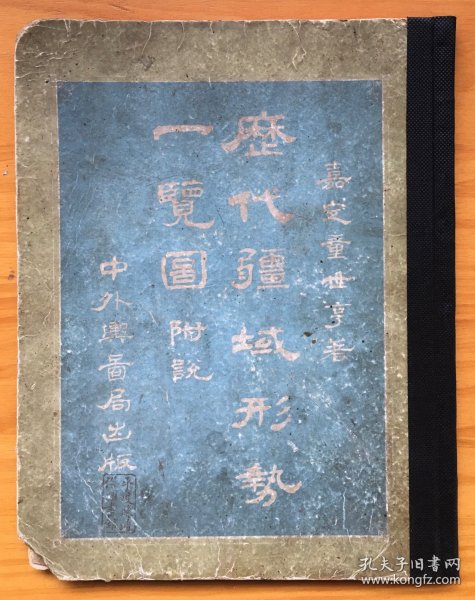 嘉定童世亨著
歷代疆域形勢
一覽圖附說
中外輿圖局出版
孔夫子旧书网
www.kongfz.com